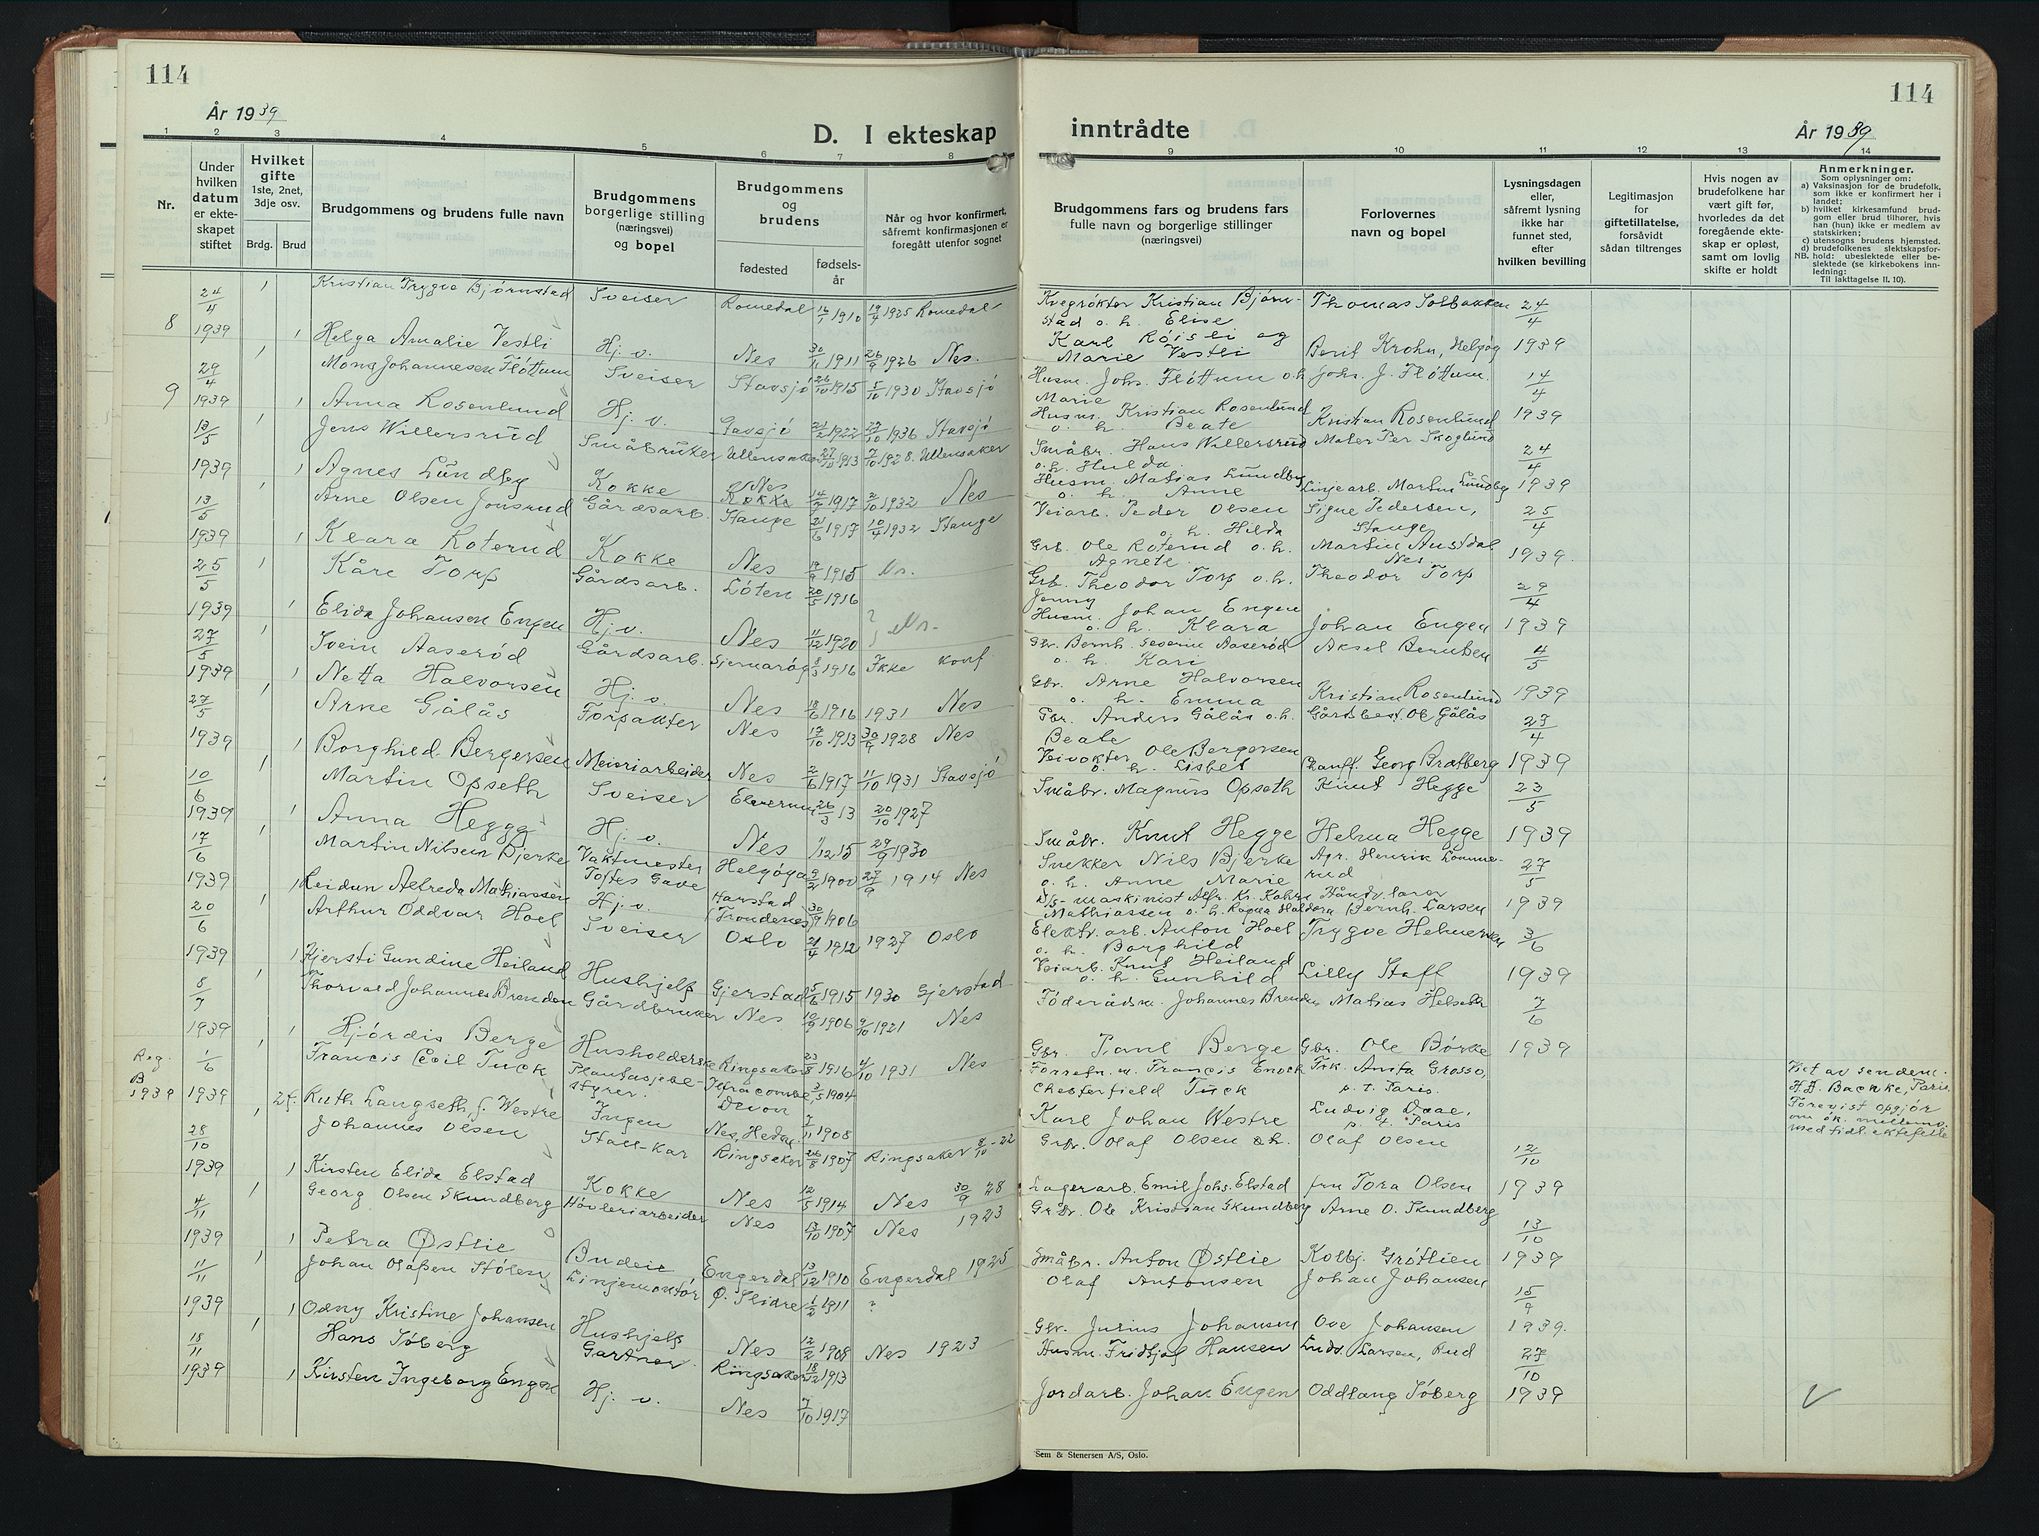 114
114
År 1939
D. I ekteskap inntrådte
År 1939
1 2 3 4 5 6 7 8 9 10 11 12 13 14
Nr.
Under hvilken datum er ekteskapet stiftet
Hvilket gifte 1ste, 2net, 3dje osv.
Brdg. Brud
Brudgommens og brudens fulle navn
Brudgommens borgerlige stilling (næringsvei) og bopel
Brudgommens og brudens
fødested
fødselsår
Når og hvor konfirmert, såfremt konfirmasjonen er foregått utenfor sognet
Brudgommens fars og brudens fars fulle navn og borgerlige stillinger (næringsvei)
Forlovernes navn og bopel
Lysningsdagen eller, såfremt lysning ikke har funnet sted, efter hvilken bevilling
Legitimasjon for giftetillatelse, forsåvidt sådan tiltrenges
Hvis nogen av brudefolkene har vært gift før, hvorledes da det foregående ekteskap er opløst, samt om lovlig skifte er holdt
Anmerkninger.
Som oplysninger om:
a) Vaksinasjon for de brudefolk, som ikke er konfirmert her i landet;
b) hvilket kirkesamfund brudgom eller brud tilhører, hvis han (hun) ikke er medlem av statskirken;
c) utensogns brudens hjemsted.
d) brudefolkenes slektskapsforhold: ubeslektede eller beslektede (se kirkebokens innledning:
NB.
Til iakttagelse II. 10).
8 24/4 1939 1 Kristian Trygve Bjørnstad Sveiser Romedal 16/1 1910 19/4 1925 Romedal Kvegrøkter Kristian Bjørnstad o. h. Elise Thomas Solbakken 24/4
1 Helga Amalie Vestli Hj. v. Nes 30/11 1911 26/9 1926 Nes. Karl Røisli og Marie Vestli Berit Krohn, Helgøy 1939
9 29/4 1939 1 Mons Johannesen Fløttum Sveiser Stavsjø 26/10 1915 5/10 1930 Stavsjø Husm. Johs. Fløttum o.h. Marie Johs. J. Fløttum. 14/4
1 Anna Rosenlund Hj. v. Stavsjø 21/2 1922 27/10 1936 Stavsjø Husm. Kristian Rosenlund o. h. Beate Kristian Rosenlund 1939
13/5 1939 1 Jens Willersrud Småbruker Ullensaker 27/10 1913 7/10 1928. Ullensaker Småbr. Hans Willersrud o.h. Hulda. Maler Per Skoglund 24/4
1 Agnes Lundby Kokke Nes 14/7 1917 2/10 1932 Nes Husm. Matias Lundby o. h. Anne Linjearb. Martin Lundby 1939
13/5 1939 1 Arne Olsen Jonsrud Gårdsarb. Stange 21/6 1917 10/4 1932 Stange Veiarb. Peder Olsen o. h. Hilda Signe Pedersen, Stange 25/4
1 Klara Roterud Kokke Nes 19/9 1915 Grb. Ole Roterud o.h. Agnete. Martin Austdal Nes 1939
25/5 1939 1 Kåre Torp Gårdsarb. Løten 20/5 1916 Grb. Theodor Torp o.h. Jenny Theodor Torp 29/4
1 Elida Johansen Engen Hj. v. Nes 11/12 1920 ? Husm. Johan Engen o. h. Klara Johan Engen 1939
27/5 1939 1 Svein Aaserød Gårdsarb. Sjernarøy 8/3 1916 Ikke konf. Gbr. Bernh. Severin Aaserød o. h. Kari Aksel Berntsen 4/5
1 Netta Halvorsen Hj. v. Nes 18/6 1916 1931 Nes Gbr. Arne Halvorsen o. h. Emma Kristian Rosenlund 1939
27/5 1939 1 Arne Gålås Forpakter Nes 17/10 1913 30/9 1928 Nes Gbr. Anders Gålås o.h. Beate Gårdbest. Ole Gålås 27/4
1 Borghild Bergersen Meieriarbeider Nes 2/6 1917 11/10 1931 Stavsjø Veivokter Ole Bergersen o. h. Lisbet Chauff. Georg Bratberg 1939
10/6 1939 1 Martin Opseth Sveiser Elverum 26/3 13 20/10 1927 Småbr. Magnus Opseth Knut Hegge 23/5
1 Anna Hegge Hj. v. Nes 1/12 15 27/9 1930 Småbr. Knut Hegge Helma Hegge 1939
17/6 1939 1 Martin Nilsen Bjerke Vaktmester Toftes Gave Helgøya 9/2 1900 27/9 1914 Nes Snekker Nils Bjerke o. h. Anne Marie Agr. Henrik Lommerud 27/5
1 Reidun Alfreda Mathiassen Hj. v. Harstad (Trondenes) 30/9 1906 D/s-maskinist Alfr. Kr. Mathiassen o. h. Ragna Haldora Håndv.lærer Bernh. Larsen 1939
20/6 1939 1 Arthur Oddvar Hoel Sveiser Oslo 21/4 1912 1927 Oslo Elektr. arb. Anton Hoel o. h. Borghild Trygve Helmersen 3/6
1 Kjersti Gundine Heiland Hushjelp Gjerstad 5/6 1915 1930 Gjerstad Veiarb. Knut Heiland o. h. Gunhild Lilly Staff 1939
8/7 1939 1 Thorvald Johannes Brenden Gårdbruker Nes 10/9 1906 9/10 1921 Nes Føderådsm. Johannes Brenden Matias Helseth 7/6
1 Hjørdis Berge Husholderske Ringsaker 23/8 1916 4/10 1931 Nes Gbr. Paul Berge Gbr. Ole Børke 1939
Reg. B 1939 1/6 1939 1 Francis Cecil Tuck Plantasjebestyrer. Ilfracombe, Devon 3/5 1904 Forretn. m. Francis Enock Chesterfield Tuck Frk. Anita Grosso, p. t. Paris. Viet av sendem. H. H. Bachke, Paris. Forevist opgjør om øk. mellemv. med tidl. ektefelle
2g. Ruth Langseth f. Westre Ingen Nes, Hedm. 7/11 1908 Karl Johan Westre Ludvig Daae, p. t. Paris
28/10 1939 1 Johannes Olsen Stall-kar Ringsaker 26/8 1907 Ringsaker 8/10-22 Grbr. Olaf Olsen o.h. Olaf Olsen 12/10
1 Kirsten Elida Elstad Kokke Nes 12/5 1914 Nes 30/9 28 Lagerarb. Emil Johs. Elstad fru Tora Olsen 1939
4/11 1939 1 Georg Olsen Skundberg Høvleriarbeider Nes 13/10 1907 Nes 1923 Grbr. Ole Kristian Skundberg Arne O. Skundberg 13/10
1 Petra Østlie Budeie Engerdal 13/12 1910 Engerdal 1925 Småbr. Anton Østlie Kolbj. Grøtlien 1939
11/11 1939 1 Johan Olafsen Stølen Linjemontør Ø. Slidre 1/2 1911 ? Olaf Antonsen Johan Johansen 15/9
1 Odny Kristine Johansen Hushjelp Nes 12/2 1908 Nes 1923 Gbr. Julius Johansen Ove Johansen 1939.
18/11 1939 1 Hans Søberg Gartner. Ringsaker 18/12 1913 Husm. Fridtjof Hansen Ludv. Larsen, Rud 27/10
1 Kirsten Ingeborg Engen Hj. v. Nes 7/10 1917 Jordarb. Johan Engen Oddlaug Søberg 1939
Sem & Stenersen A/S, Oslo.